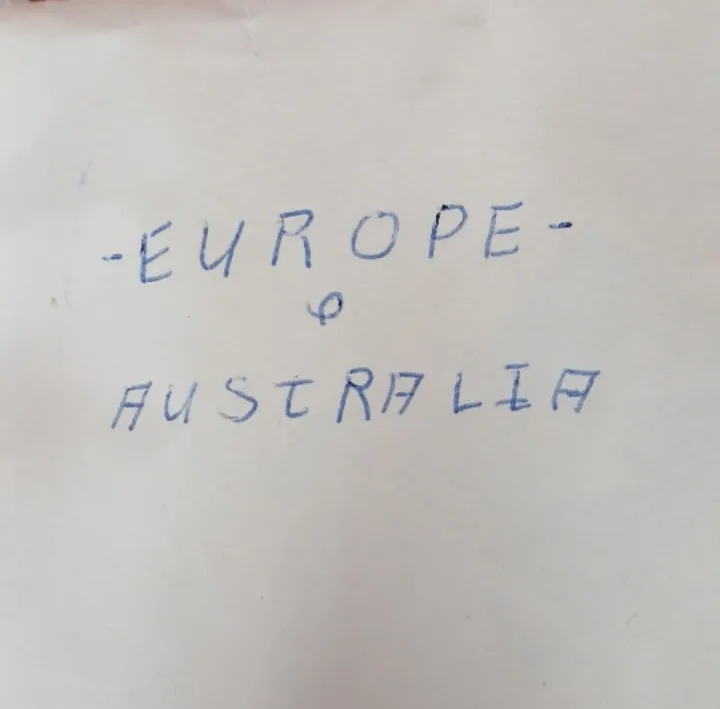 -EUROPE-
AUSTRALIA